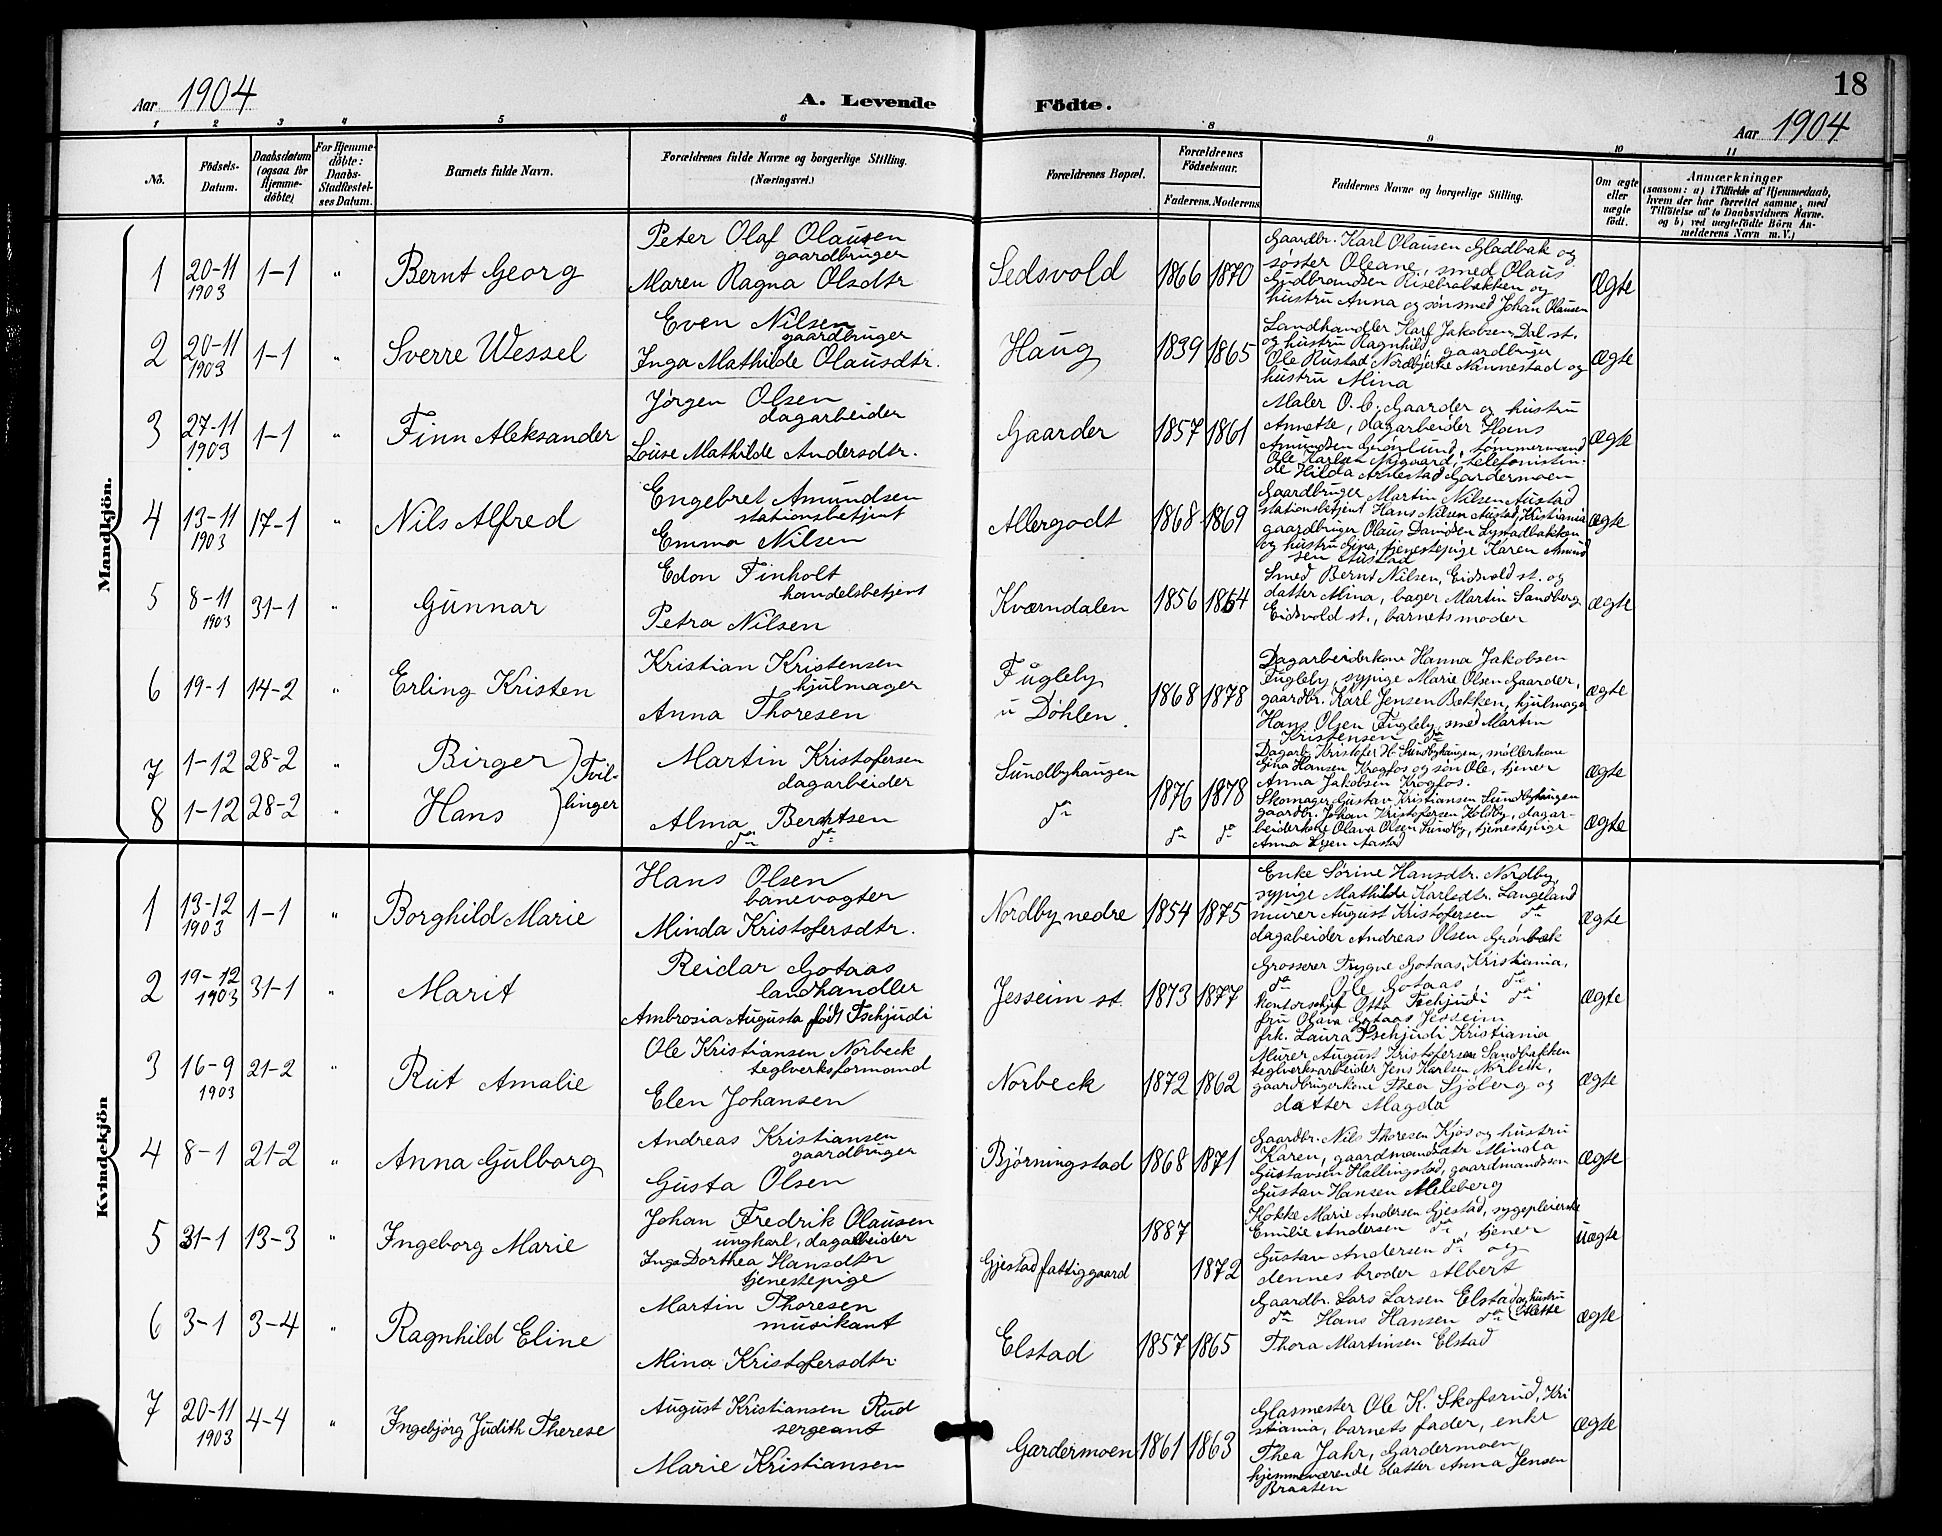 18
Aar 1904
A. Levende
Födte.
Aar 1904
1 2 3 4 5 6 8 9 10 11
No.
Födsels-Datum.
Daabsdatum (ogsaa for Hjemme-døbte)
For Hjemme-døbte: Daabs-Stadfæstel-ses Datum.
Barnets fulde Navn.
Forældrenes fulde Navne og borgerlige Stilling.
(Næringsvei.)
Forældrenes Bopæl.
Forældrenes Födselsaar.
Faderens. Moderens.
Faddernes Navne og borgerlige Stilling.
Om ægte eller uægte født.
Anmærkninger
(saasom: a) i Tilfælde af Hjemmedaab,
hvem der har forrettet samme, med
Tilföielse af to Daabsvidners Navne.
og b) ved uægtefödte Börn An-
melderens Navn m. V.)
Mandkjön.
1 20-11 1903 1-1 " Bernt Georg
Peter Olaf Olausen
gaardbruger
Maren Ragna Olsdtr
Sedsvold 1866 1870
Gaardbr. Karl Olausen Gladbak og
søster Oleane, smed Olaus
Gudbrandsen Risebrobakken og
hustru Anna og søn smed Johan Olausen
Ægte
2 20-11 1903 1-1 " Sverre Wessel
Even Nilsen
gaardbruger
Inga Mathilde Olausdtr.
Haug 1839 1865
Landhandler Karl Jakobsen, Dal st.
og hustru Ragnhild, gaardbruger
Ole Rustad Nordbjerke Nannestad og
hustru Mina
Ægte
3 27-11 1903 1-1 " Finn Aleksander
Jørgen Olsen
dagarbeider
Louise Mathilde Andersdtr.
Gaarder 1857 1861
Maler O. C. Gaarder og hustru
Annette, dagarbeider Hans
Amundsen Grønlund, tømmermand
Ole Karlsen Nygaard, telefonistin-
de Hilda Arnestad Gardermoen
Ægte
4 13-11 1903 17-1 " Nils Alfred
Engebret Amundsen
stationsbetjent
Emma Nilsen
Allergodt 1868 1869
Gaardbruger Martin Nilsen Austad
stationsbetjent Hans Nilsen Austad, Kristiania
gaardbruger Olaus Davidsen
og hustru Gina, tjenestepige Karen Amund
sen Austad
Ægte
5 8-11 1903 31-1 " Gunnar
Edon Finholt
handelsbetjent
Petra Nilsen
Kværndalen 1856 1864
Smed Bernt Nilsen, Eidsvold st. og
datter Mina, bager Martin Sandberg
Eidsvold st., barnets moder
Ægte
6 19-1 14-2 " Erling Kristen
Kristian Kristensen
hjulmager
Anna Thoresen
Fugleby
u Døhlen. 1868 1878
Dagarbeiderkone Hanna Jakobsen
Fugleby, sypige Marie Olsen Gaarder,
gaardbr. Karl Jensen Bekken, hjulmager
Hans Olsen Fugleby, smed Martin
Kristensen do
Ægte
7 1-12 28-2 " Birger } Tvil-
Martin Kristofersen
dagarbeider
Sundbyhaugen
1876 1878
Dagarb. Kristofer H. Sundbyhaugen, møllerkone
Gina Hansen Krogfos og søn Ole, tjener
Anna Jakobsen Krogfos.
Ægte
8 1-12 28-2 " Hans } linger
Alma Berntsen
do do
do
do do
Skomager Gustav Kristiansen Sundbyhaugen
gaardbr. Johan Kristofersen Holdby, dagar-
beiderkone Olava Olsen Sundby, tjenestepige
Anna Aastad
Ægte
Kvindekjön
1 13-12 1903 1-1 " Borghild Marie
Hans Olsen
banevogter
Minda Kristofersdtr.
Nordby nedre 1854 1875
Enke Sørine Hansdtr. Nordby,
sypige Mathilde Karlsdtr. Langeland
murer August Kristofersen do
dagabeider Andreas Olsen Grønbæk
Ægte
2 19-12 1903 31-1 " Marit
Reidar Gotaas
landhandler
Ambrosia Augusta født Tschjudi
Jesseim st. 1873 1877
Grosserer Trygve Gotaas, Kristiania,
do Ole Gotaas, do.
Kontorschef Otto Tschjudi do
fru Olava Gotaas Jesseim
frk. Laura Tschjudi Kristiania
Ægte
3 16-9 1903 21-2 " Rut Amalie
Ole Kristiansen Norbeck
teglverksformand
Elen Johansen
Norbeck 1872 1862
Murer August Kristofersen Sandbakken
teglverksarbeider Jens Karlsen Norbeck,
gaardbrugerkone Thea Sjøberg og
datter Magda
Ægte
4 8-1 21-2 " Anna Gulborg
Andreas Kristiansen
gaardbruger
Gusta Olsen
Bjørningstad 1868 1871
Gaardbr. Nils Thoresen Kjos og hustru
Karen, gaardmandsdtr Minda
Gustavsen Hallingstad, gaardmandssøn
Gustav Hansen Meleberg
Ægte
5 31-1 13-3 " Ingeborg Marie
Johan Fredrik Olausen
ungkarl, dagarbeider
Inga Dorthea Hansdtr
tjenestepige
Gjestad fattiggaard
1887
1872
Kokke Marie Andersen Gjestad, sygepleierske
Emilie Andersen do, tjener
Gustav Andersen do og
dennes broder Albert
uægte
6 3-1 3-4 " Ragnhild Eline
Martin Thoresen
musikant
Mina Kristofersdtr
Elstad 1857 1865
Gaardbr. Lars Larsen Elstad og hustru
do Hans Hansen do (Mette
Thora Martinsen Elstad
Ægte
7 20-11 1903 4-4 " Ingebjørg Judith Therese
August Kristiansen Rud
sergeant
Marie Kristiansen
Gardermoen 1861 1863
Glasmester Ole K. Skofsrud, Kri
stiania, barnets fader, enke
Thea Jahr, Gardermoen,
hjemmeværende datter Anna Jensen
Braaten
Ægte